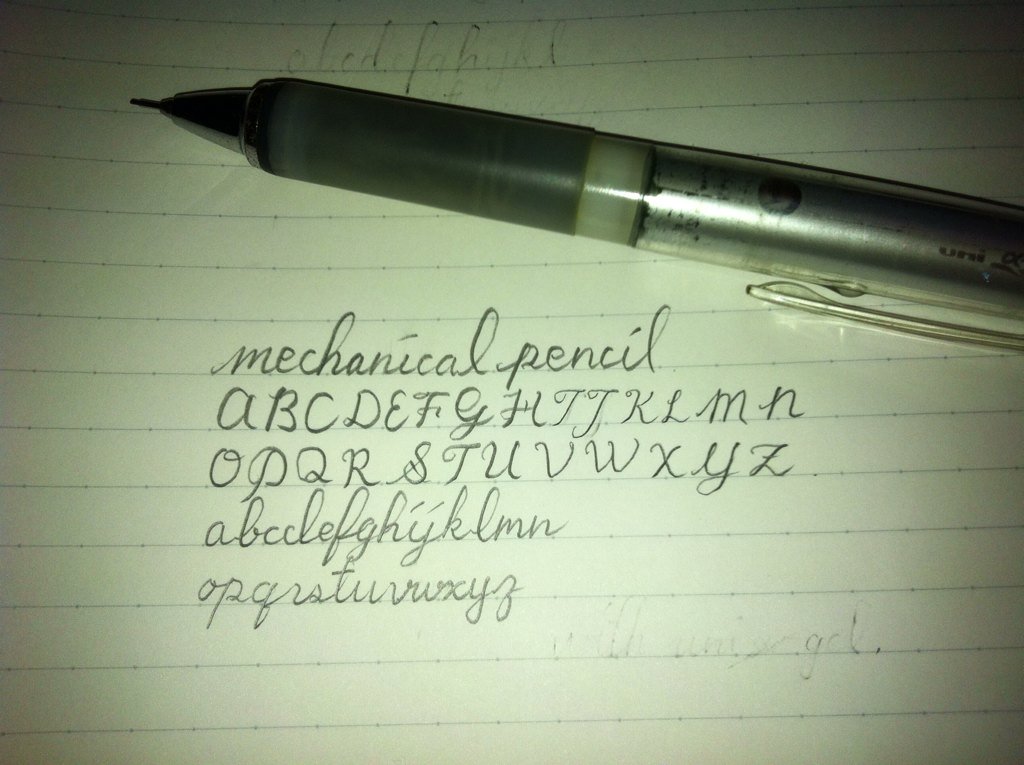 abcdefghijkl
uni
mechanical pencil
ABCDEFGHIJKLMN
OPQRSTUVWXYZ
abcdefghijklmn
opqrstuvwxyz
with uni gel.